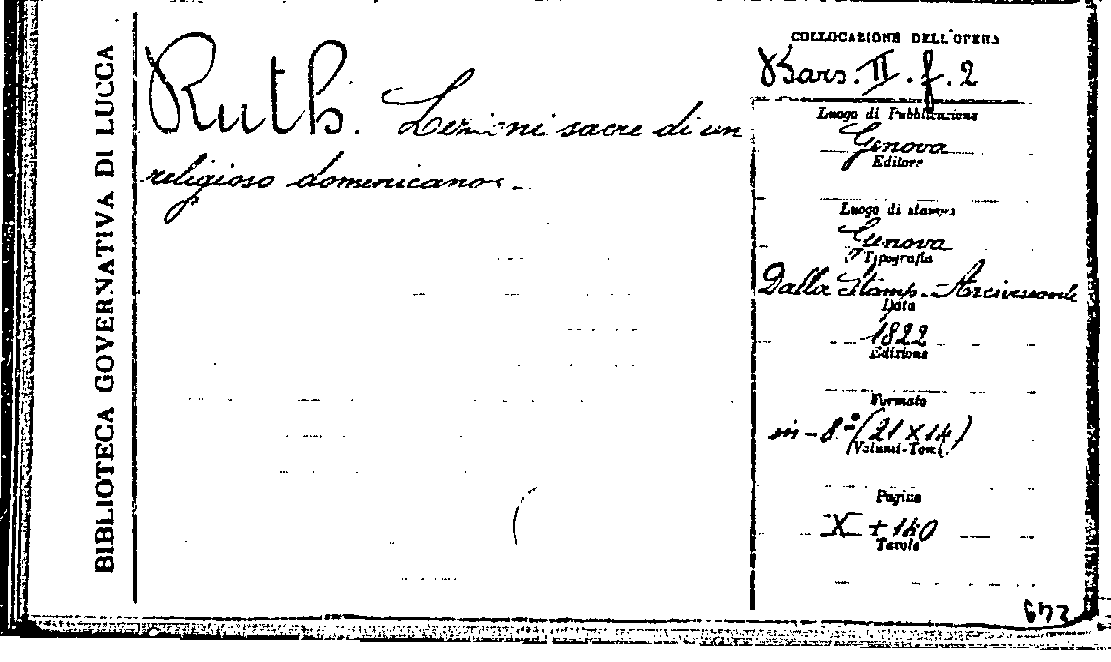 BIBLIOTECA GOVERNATIVA DI LUCCA
Ruth. Lezioni sacre di un
religioso domenicano.
COLLOCAZIONE DELL'OPERA
Bars. II. f. 2
Luogo di Pubblicazione
Genova
Editore
Luogo di stampa
Genova
Tipografia
Dalla Stamp. Arcivescovile
Data
1822
Edizione
Formato
in-8° (21 x 14)
Volumi-Tomi
Pagine
X + 140
Tavole